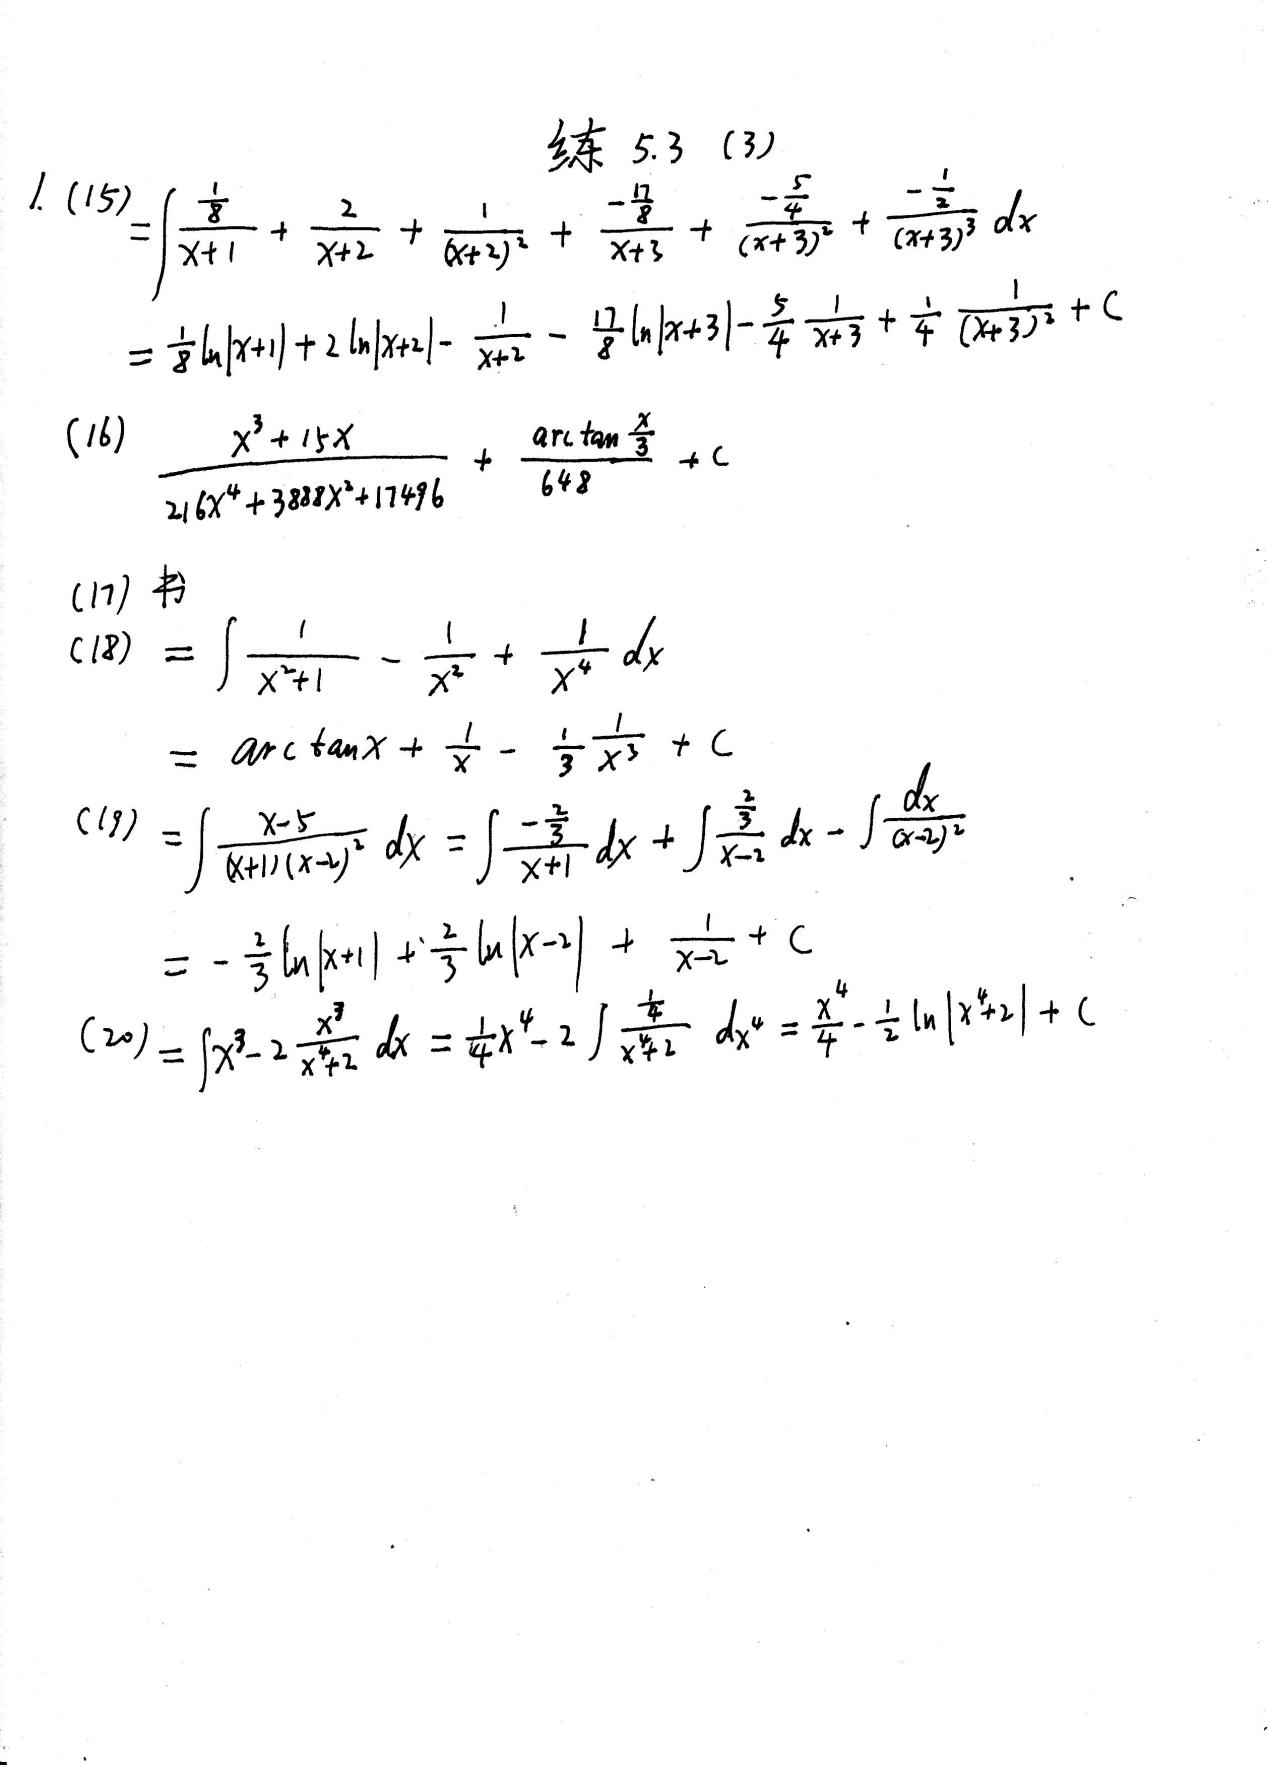 练 5.3 (3)
1. (15) = ∫ (1/8)/(x+1) + 2/(x+2) + 1/(x+2)² + (-17/8)/(x+3) + (-5/4)/(x+3)² + (-1/2)/(x+3)³ dx
= 1/8 ln|x+1| + 2 ln|x+2| - 1/(x+2) - 17/8 ln|x+3| - 5/4 1/(x+3) + 1/4 1/(x+3)² + C
(16) (x³+15x)/(216x⁴+3888x²+17496) + (arctan x/3)/648 + C
(17) 书
(18) = ∫ 1/(x²+1) - 1/x² + 1/x⁴ dx
= arctanx + 1/x - 1/3 1/x³ + C
(19) = ∫ (x-5)/((x+1)(x-2)²) dx = ∫ (-2/3)/(x+1) dx + ∫ (2/3)/(x-2) dx - ∫ dx/(x-2)²
= -2/3 ln|x+1| + 2/3 ln|x-2| + 1/(x-2) + C
(20) = ∫ x³ - 2 x³/(x⁴+2) dx = 1/4 x⁴ - 2 ∫ (1/4)/(x⁴+2) dx⁴ = x⁴/4 - 1/2 ln|x⁴+2| + C